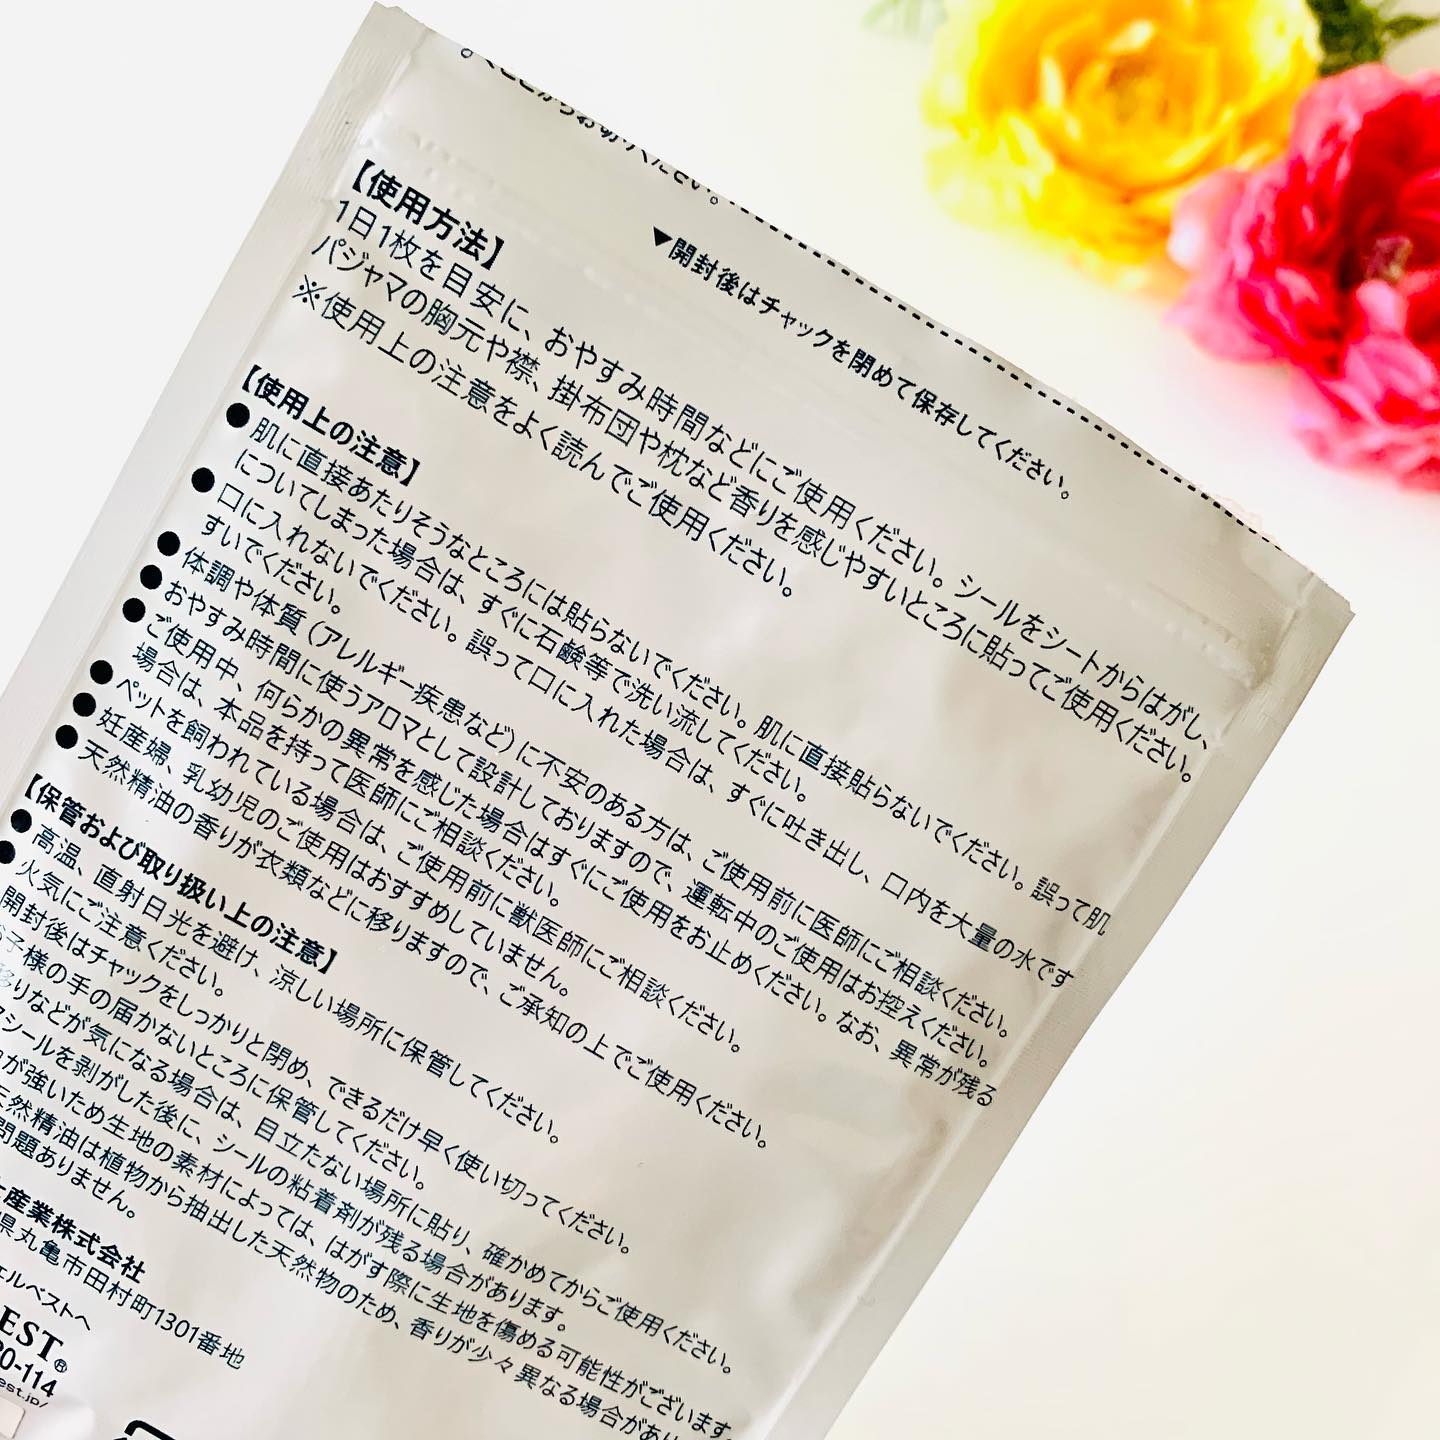 ▼開封後はチャックを閉めて保存してください。
【使用方法】
1日1枚を目安に、おやすみ時間などにご使用ください。シールをシートからはがし、
パジャマの胸元や襟、掛布団や枕など香りを感じやすいところに貼ってご使用ください。
※使用上の注意をよく読んでご使用ください。
【使用上の注意】
●肌に直接あたりそうなところには貼らないでください。肌に直接貼らないでください。誤って肌
についてしまった場合は、すぐに石鹸等で洗い流してください。
●口に入れないでください。誤って口に入れた場合は、すぐに吐き出し、口内を大量の水です
すいでください。
●体調や体質(アレルギー疾患など)に不安のある方は、ご使用前に医師にご相談ください。
●おやすみ時間に使うアロマとして設計しておりますので、運転中のご使用はお控えください。
●ご使用中、何らかの異常を感じた場合はすぐにご使用をお止めください。なお、異常が残る
場合は、本品を持って医師にご相談ください。
●ペットを飼われている場合は、ご使用前に獣医師にご相談ください。
●妊産婦、乳幼児のご使用はおすすめしていません。
●天然精油の香りが衣類などに移りますので、ご承知の上でご使用ください。
【保管および取り扱い上の注意】
●高温、直射日光を避け、涼しい場所に保管してください。
●火気にご注意ください。
開封後はチャックをしっかりと閉め、できるだけ早く使い切ってください。
子様の手の届かないところに保管してください。
移りなどが気になる場合は、目立たない場所に貼り、確かめてからご使用ください。
シールを剥がした後に、シールの粘着剤が残る場合があります。
が強いため生地の素材によっては、はがす際に生地を傷める可能性がございます
天然精油は植物から抽出した天然物のため、香りが少々異なる場合があり
問題ありません。
産業株式会社
県丸亀市田村町1301番地
エルベストへ
EST®
0-114
est.jp/